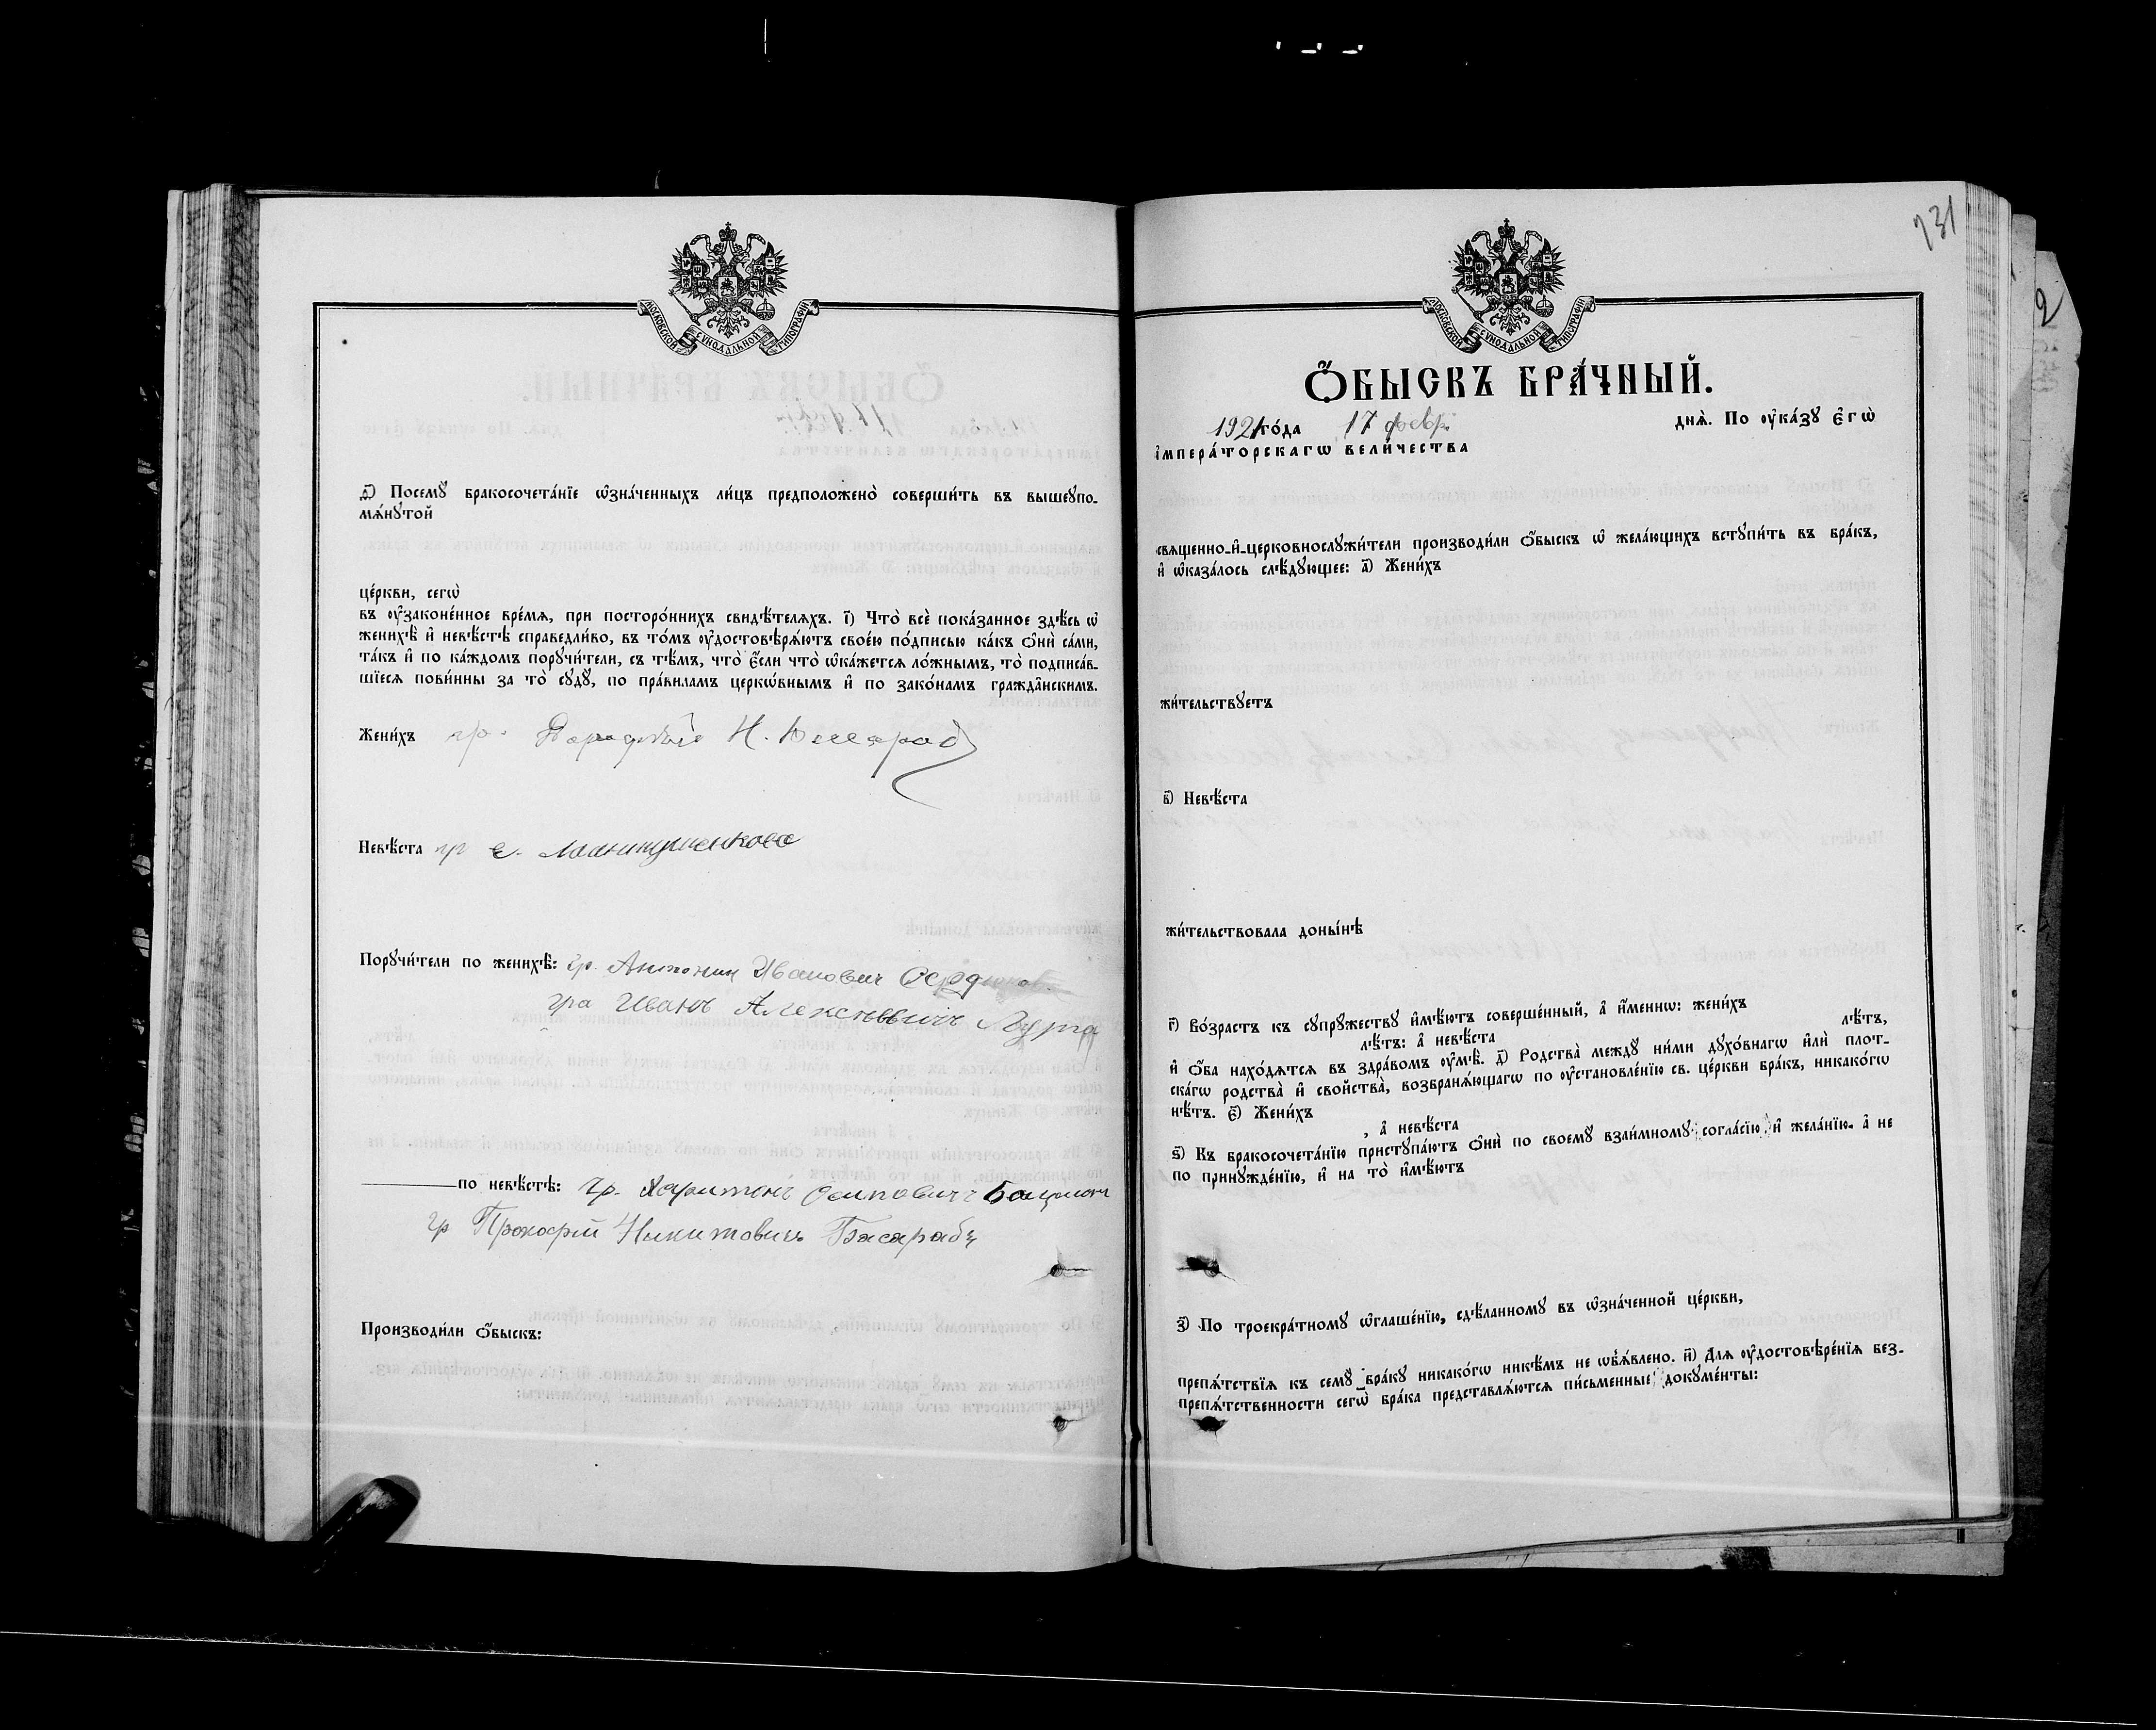 МОСКОВСКОЙ СѴНОДАЛЬНОЙ ТИПОГРАФІИ
д҃) Посемꙋ бракосочета́нїе ѡ҆зна́ченныхъ ли́цъ предположено̀ соверши́ть въ вышеꙋпо-
мѧ́нꙋтой
це́ркви, сегѡ̀
въ ᲂу҆законе́нное вре́мѧ, при посторо́ннихъ свидѣ́телѧхъ. і҃) Что̀ всѐ пока́занное здѣ́сь ѡ҆
женихѣ̀ и҆ невѣ́стѣ справедли́во, въ то́мъ ᲂу҆достовѣрѧ́ютъ свое́ю по́дписью ка́къ ѻ҆нѝ са́ми,
та́къ и҆ по ка́ждомъ порꙋчи́тели, съ тѣ́мъ, что̀ є҆́сли что̀ ѡ҆ка́жетсѧ ло́жнымъ, то̀ подписа́в-
шїесѧ пови́нны за то̀ сꙋдꙋ̀, по пра́виламъ церкѡ́внымъ и҆ по зако́намъ гражда̑нскимъ.
Жени́хъ гр.
Невѣ́ста гр
Порꙋчи́тели по женихѣ̀: гр. Антонин Иванович Сердюков
гра Иванъ Алексѣевичъ
по невѣ́стѣ: гр. Харитонъ Осиповичъ
гр Прокофий Никитович Басарабъ
Производи́ли ѻ҆́быскъ:
231
2
МОСКОВСКОЙ СѴНОДАЛЬНОЙ ТИПОГРАФІИ
Ѻ҆́БЫСКЪ БРА́ЧНЫЙ.
1921 го́да 17 февр. днѧ̀. По ᲂу҆ка́зꙋ є҆гѡ̀
і҆мпера́торскагѡ вели́чества
свѧщенно-и҆-церковнослꙋжи́тели производи́ли ѻ҆́быскъ ѡ҆ жела́ющихъ встꙋпи́ть въ бра́къ,
и҆ ѡ҆каза́лось слѣ́дꙋющее: а҃) Жени́хъ
жи́тельствꙋетъ
в҃) Невѣ́ста
жи́тельствовала доны́нѣ
г҃) Во́зрастъ къ сꙋпрꙋ́жествꙋ и҆мѣ́ютъ соверше́нный, а҆ и҆́меннѡ: жени́хъ
лѣ́тъ: а҆ невѣ́ста лѣ́тъ,
и҆ ѻ҆́ба нахо́дѧтсѧ въ здра́вомъ ᲂу҆мѣ̀. д҃) Родства̀ междꙋ ни́ми дꙋхо́внагѡ и҆лѝ плот-
ска́гѡ родства̀ и҆ свойства̀, возбранѧ́ющагѡ по ᲂу҆становле́нїю св. це́ркви бра́къ, никако́гѡ
нѣ́тъ. є҃) Жени́хъ
, а҆ невѣ́ста
ѕ҃) Къ бракосочета́нїю пристꙋпа́ютъ ѻ҆нѝ по своемꙋ̀ взаи́мномꙋ согла́сїю и҆ жела́нїю, а҆ не
по принꙋжде́нїю, и҆ на то̀ и҆мѣ́ютъ
з҃) По троекра́тномꙋ ѡ҆глаше́нїю, сдѣ́ланномꙋ въ ѡ҆зна́ченной це́ркви,
препѧ́тствїѧ къ семꙋ̀ бра́кꙋ никако́гѡ никѣ́мъ не ѡ҆б̾ѧ́влено. и҃) Длѧ ᲂу҆достовѣре́нїѧ без-
препѧ́тственности сегѡ̀ бра́ка представлѧ́ютсѧ пи́сьменные докꙋме́нты: